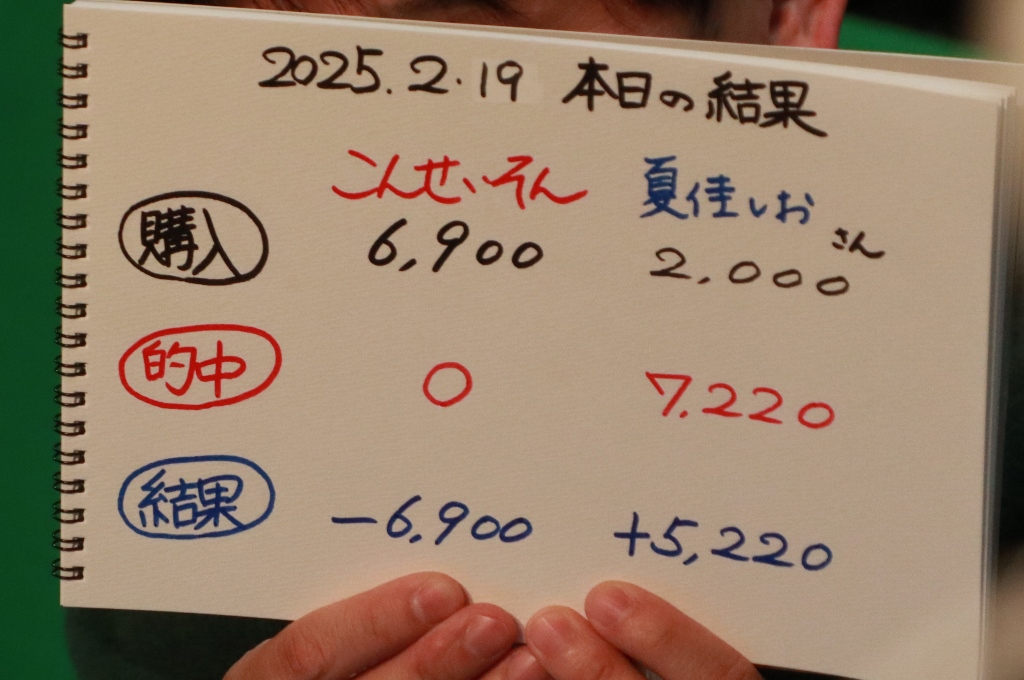 2025.2.19 本日の結果
こんせいそん 夏佳しおさん
購入 6,900 2,000
的中 0 7,220
結果 -6,900 +5,220